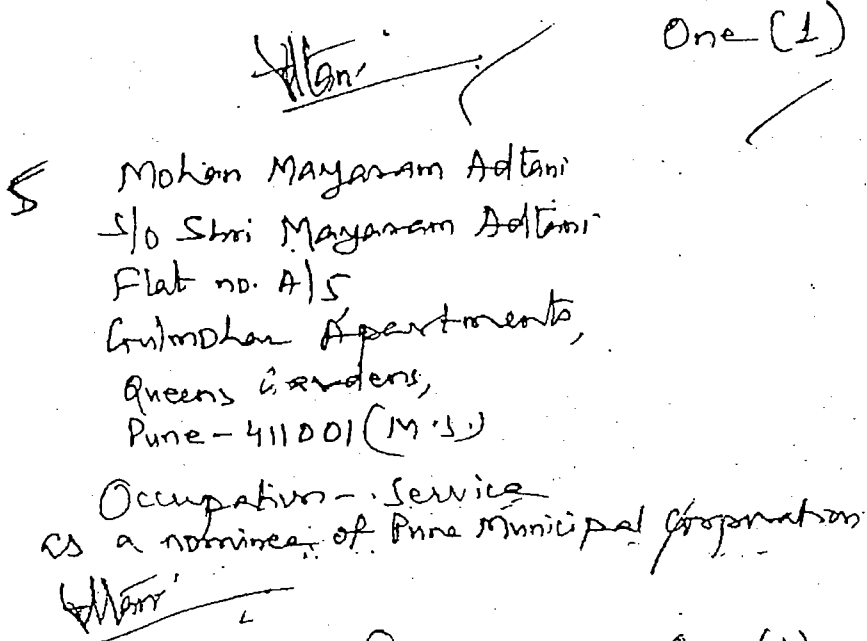 One (1)
5 Mohan Mayaram Adtani
S/o Shri Mayaram Adtani
Flat no. A/5
Gulmohar Apartments,
Queens Gardens,
Pune - 411001 (M.S.)
Occupation - Service
as a nominee of Pune Municipal Corporation